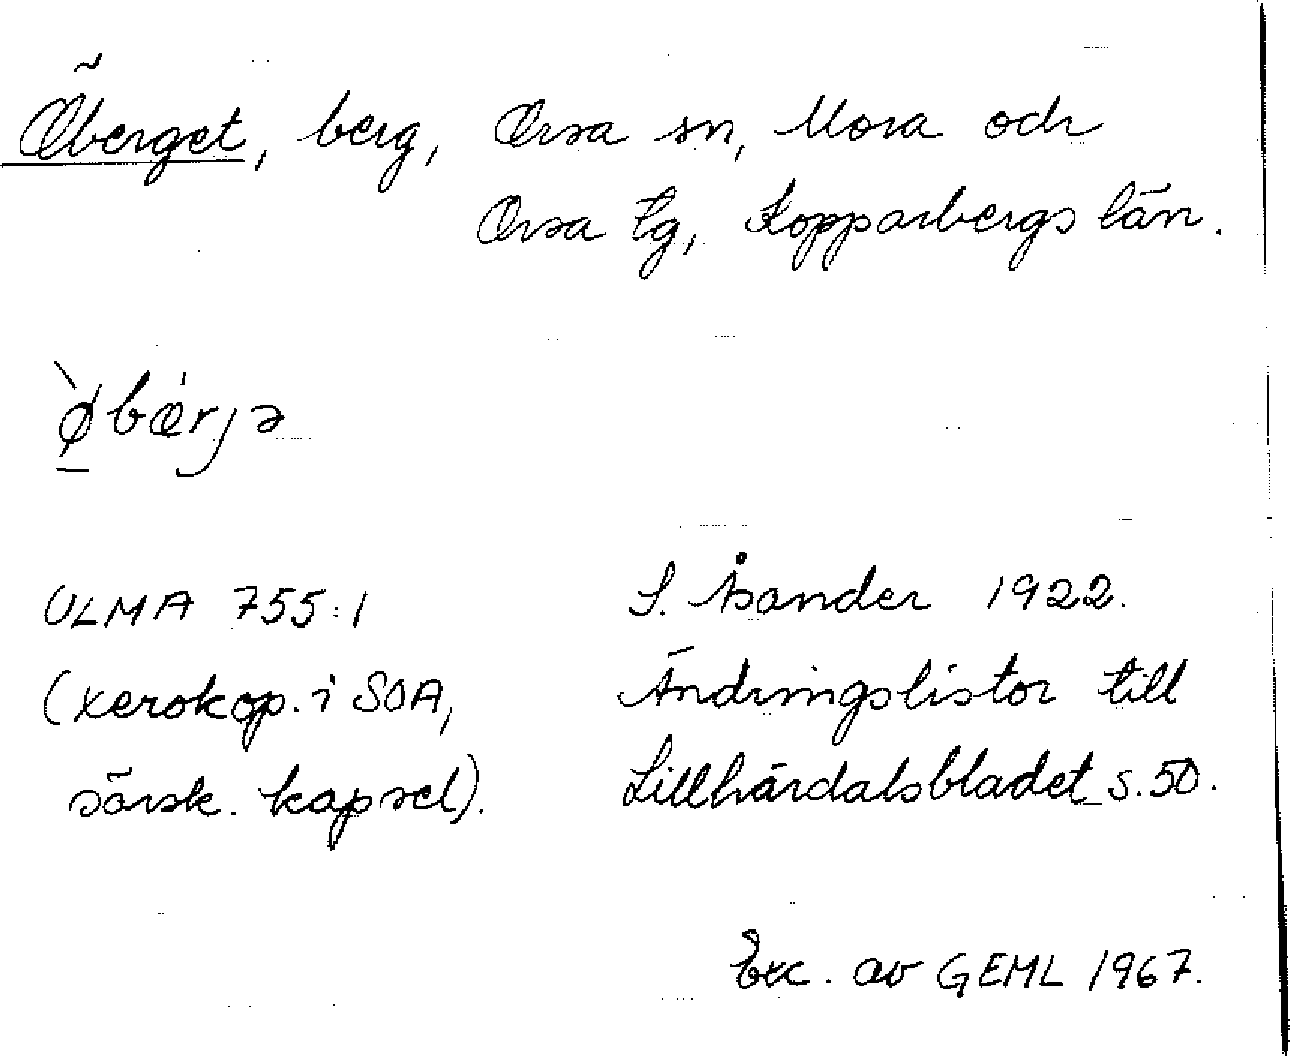 Öberget, berg, Orsa sn, Mora och
Orsa tg, Kopparbergs län.
ø̀bæ̀rjə
ULMA 755:1
(xerokop. i SOA,
särsk. kapsel).
S. Åsander 1922.
Ändringslistor till
Lillhärdalsbladet s. 50.
Exc. av GEML 1967.